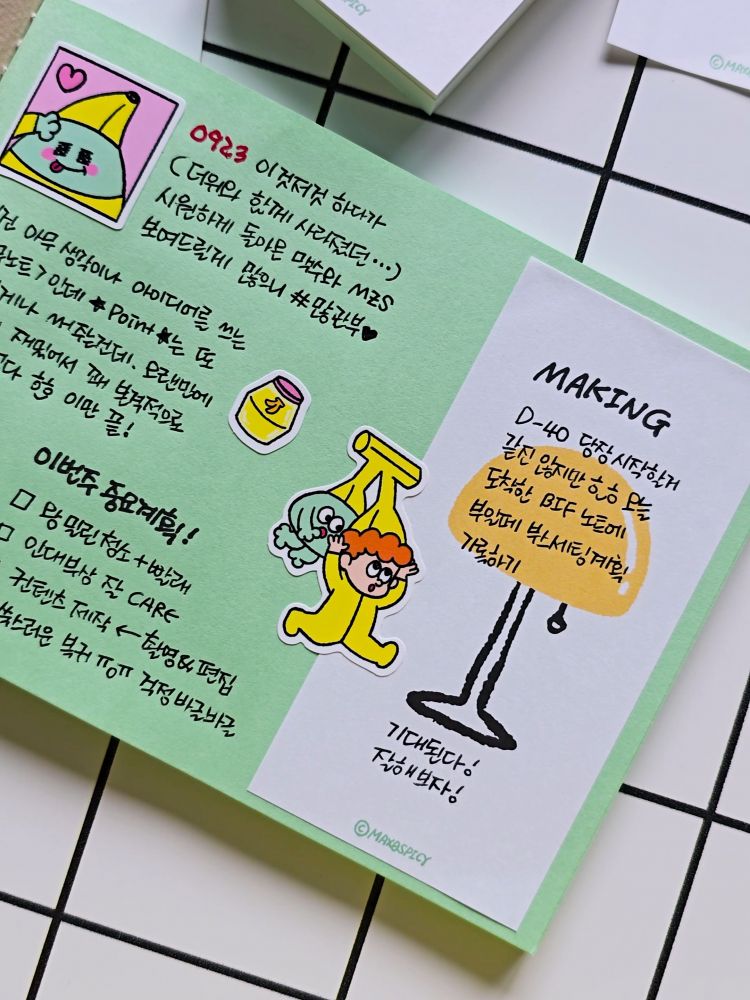 0923 이것저것 하다가
(더위와 함께 사라졌던…)
시원하게 돌아온 맥수와 MZS
보여드릴게 많으니 #많관부♥
아무 생각이나 아이디어를 쓰는
노트>인데 *Point*는 또
써주는건데. 오랜만에
재밌어서 꽤 본격적으로
할 이만 끝!
이번주 중요계획!
□ 왕밀린청소+빨래
□ 인대부상 잘 CARE
컨텐츠 제작 ← 촬영&편집
복귀 ㅠㅇㅠ 걱정바글바글
MAKING
D-40 당장시작할거
같진 않지만 흐흐 오늘
도착한 BIF 노트에
부스세팅계획
기록하기
기대된다!
잘해보자!
©MAX&SPICY
SPICY
©MAX